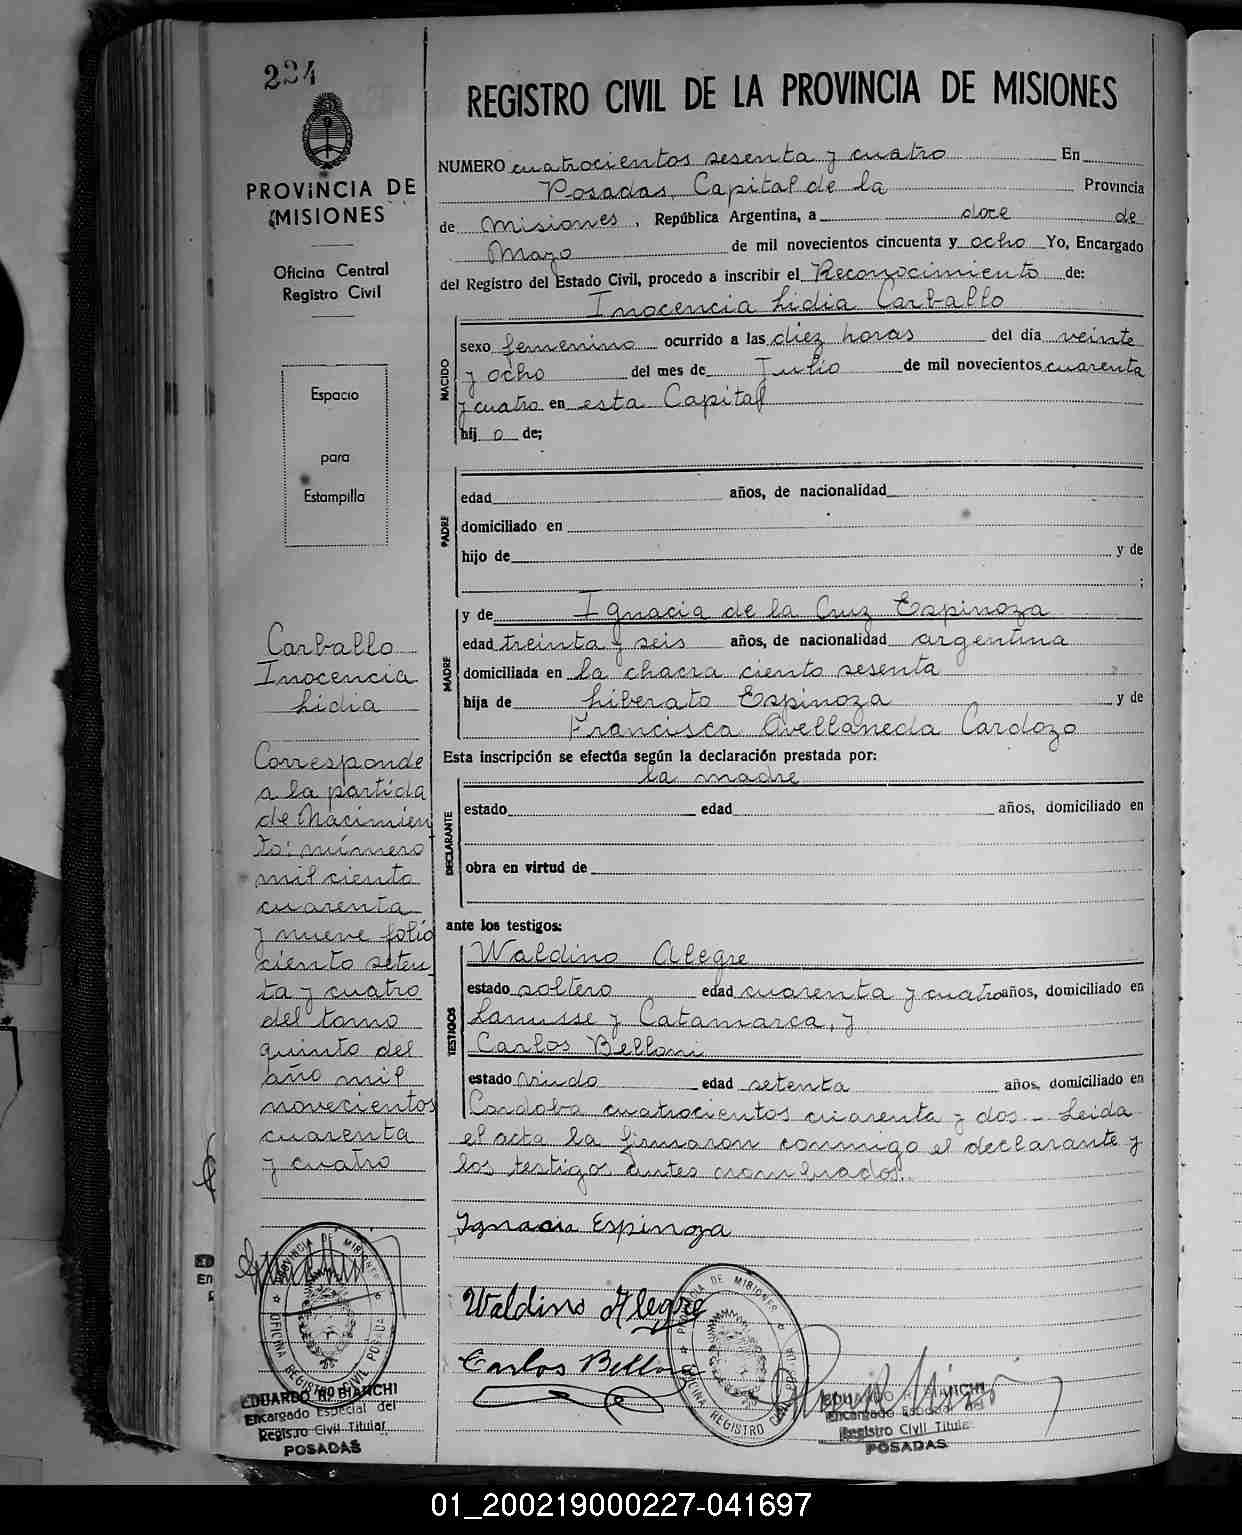 224
PROVINCIA DE
MISIONES
Oficina Central
Registro Civil
Espacio
para
Estampilla
Carballo
Inocencia
Lidia
Corresponde
a la partida
de Nacimien
to: número
mil ciento
cuarenta
y nueve folio
ciento seten
ta y cuatro
del tomo
quinto del
año mil
novecientos
cuarenta
y cuatro
PROVINCIA DE MISIONES
OFICINA REGISTRO CIVIL POSADAS
EDUARDO R. BIANCHI
Encargado Especial del
Registro Civil Titular
POSADAS
REGISTRO CIVIL DE LA PROVINCIA DE MISIONES
NUMERO cuatrocientos sesenta y cuatro En
Posadas, Capital de la Provincia
de Misiones, República Argentina, a doce de
Mayo de mil novecientos cincuenta y ocho Yo, Encargado
del Registro del Estado Civil, procedo a inscribir el Reconocimiento de:
Inocencia Lidia Carballo
NACIDO
sexo femenino ocurrido a las diez horas del día veinte
y ocho del mes de Julio de mil novecientos cuarenta
y cuatro en esta Capital
hij o de;
PADRE
edad años, de nacionalidad
domiciliado en
hijo de y de
;
MADRE
y de Ignacia de la Cruz Espinoza
edad treinta y seis años, de nacionalidad argentina
domiciliada en la chacra ciento sesenta
hija de Liberato Espinoza y de
Francisca Avellaneda Cardozo
Esta inscripción se efectúa según la declaración prestada por:
la madre
DECLARANTE
estado edad años, domiciliado en
obra en virtud de
ante los testigos:
TESTIGOS
Waldino Alegre
estado soltero edad cuarenta y cuatro años, domiciliado en
Lanusse y Catamarca, y
Carlos Belloni
estado viudo edad setenta años, domiciliado en
Cordoba cuatrocientos cuarenta y dos - Leida
el acta la firmaron conmigo el declarante y
los testigos antes nombrados.
Ignacia Espinoza
Waldino Alegre
Carlos Belloni
PROVINCIA DE MISIONES
OFICINA REGISTRO CIVIL
EDUARDO R. BIANCHI
Encargado Especial del
Registro Civil Titular
POSADAS
01_200219000227-041697